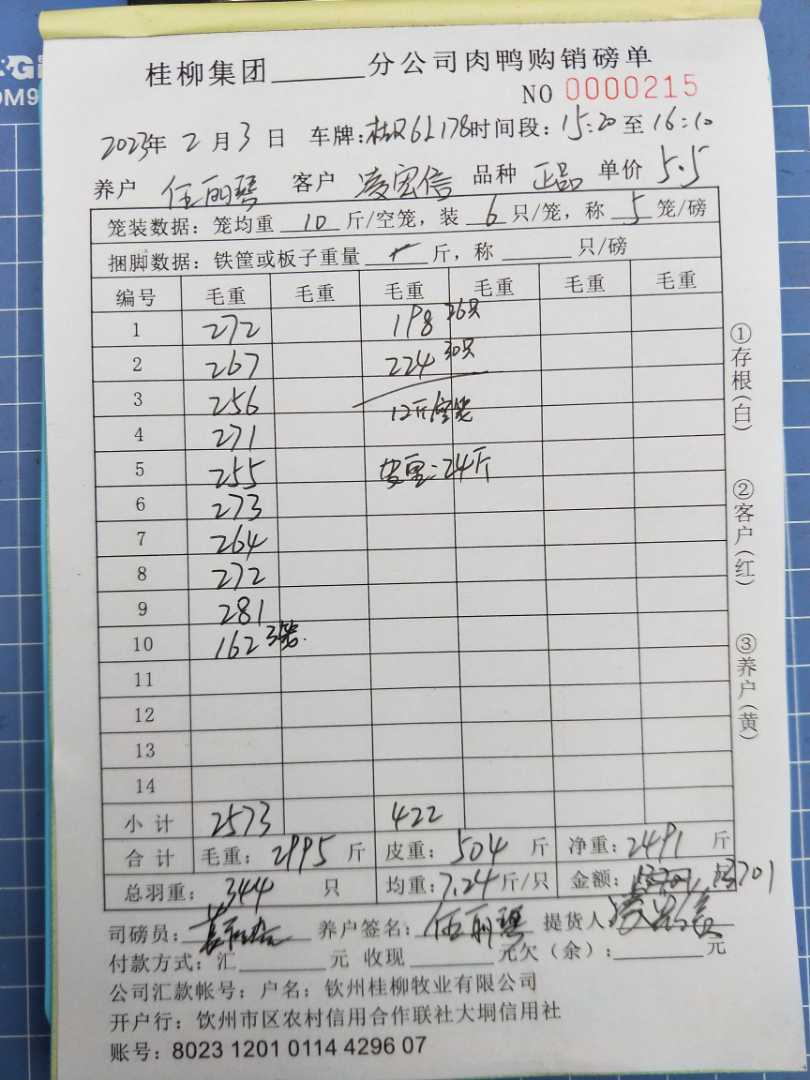 桂柳集团______分公司肉鸭购销磅单
NO 0000215
2023年 2 月 3 日 车牌:桂R6L178 时间段: 15:20 至 16:10
养户 任丽琴 客户 凌宏信 品种 正品 单价 5.5
笼装数据: 笼均重 10 斤/空笼, 装 6 只/笼, 称 5 笼/磅
捆脚数据: 铁筐或板子重量 斤, 称 只/磅
编号 毛重 毛重 毛重 毛重 毛重 毛重
1 272 198 26只
2 267 224 30只
3 256 12斤/空笼
4 271
5 255 皮重:24斤
6 273
7 264
8 272
9 281
10 162 3笼.
11
12
13
14
小 计 2573 422
合 计 毛重: 2995 斤 皮重: 504 斤 净重: 2491 斤
总羽重: 344 只 均重: 7.24 斤/只 金额: 13701
司磅员: 养户签名: 任丽琴 提货人:
付款方式: 汇______元 收现______元欠(余):______元
公司汇款帐号: 户名: 钦州桂柳牧业有限公司
开户行: 钦州市区农村信用合作联社大垌信用社
账号: 8023 1201 0114 4296 07
①存根(白)
②客户(红)
③养户(黄)